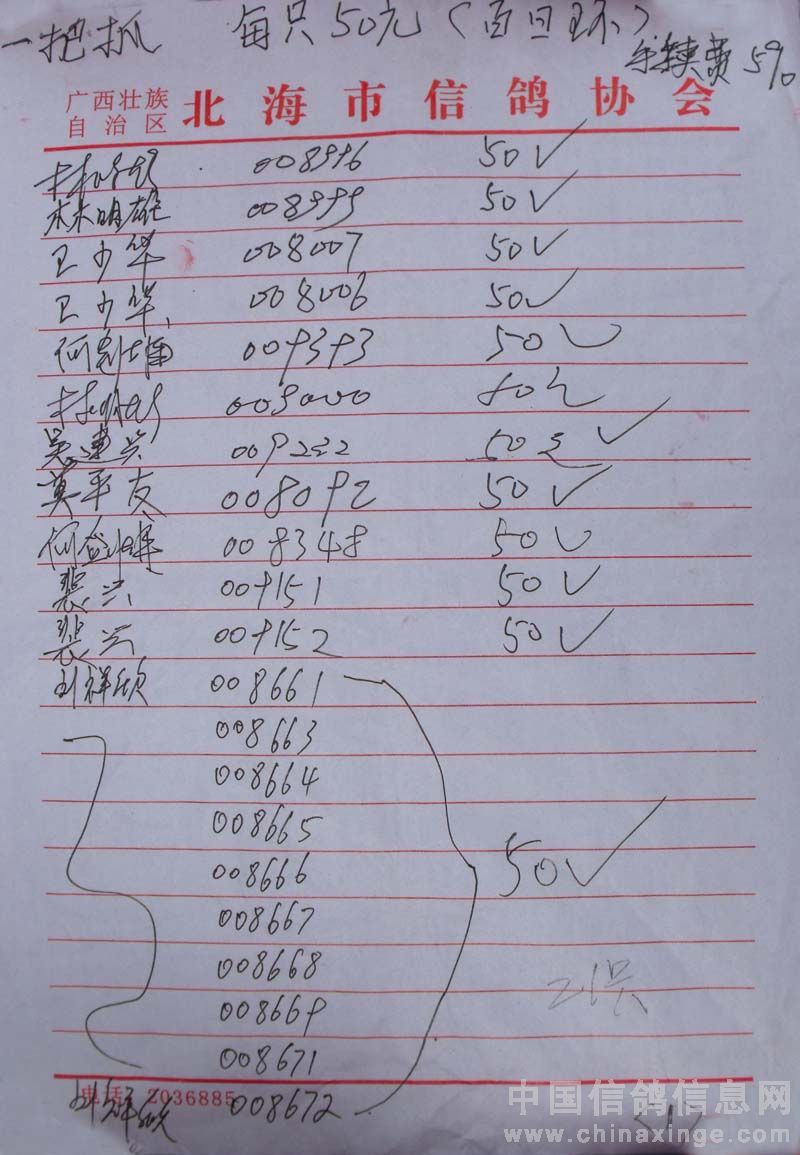 一把抓 每只50元(百旦环)
手续费5%
广西壮族
自治区
北海市信鸽协会
008996 50✓
林明雄 008999 50✓
卫少华 008007 50✓
卫少华 008006 50✓
何剑雄 009393 50✓
009000 50元
吴建兴 009222 50元✓
莫平友 008092 50✓
何剑雄 008348 50✓
裴兴 009151 50✓
裴兴 009152 50✓
刘祥欣 008661
008663
008664
008665
008666 50✓
008667
008668
008669 21只
008671
电话 2036885
刘祥欣 008672
中国信鸽信息网
www.chinaxinge.com